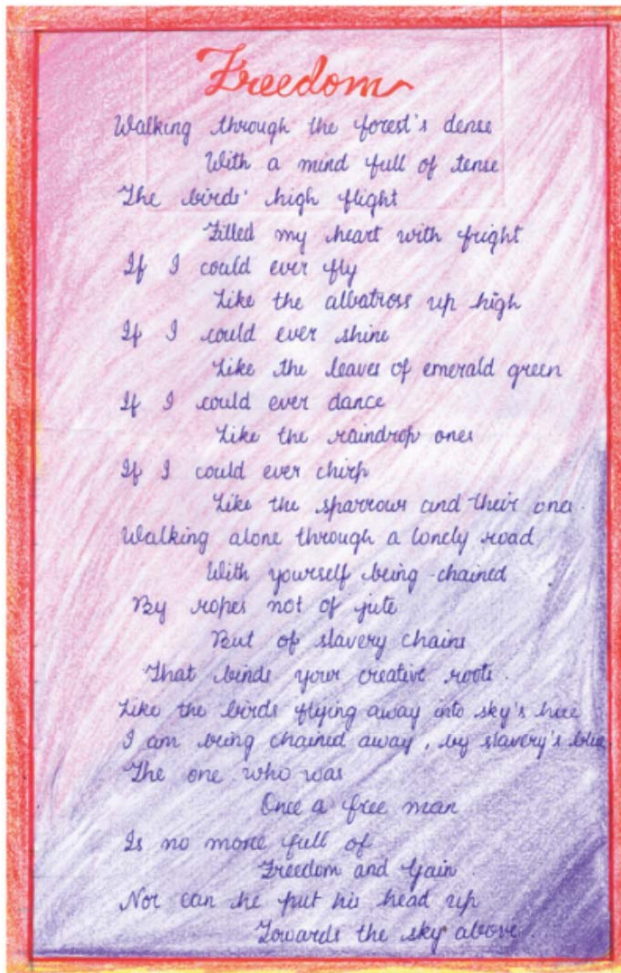 Freedom
Walking through the forest's dense
With a mind full of tense
The birds' high flight
Filled my heart with fright
If I could ever fly
Like the albatross up high
If I could ever shine
Like the leaves of emerald green
If I could ever dance
Like the raindrop ones
If I could ever chirp
Like the sparrows and their ones.
Walking alone through a lonely road
With yourself being chained
By ropes not of jute
But of slavery chains
That binds your creative roots.
Like the birds flying away into sky's hue
I am being chained away, by slavery's blue
The one who was
Once a free man
Is no more full of
Freedom and Gain.
Nor can he put his head up
Towards the sky above.